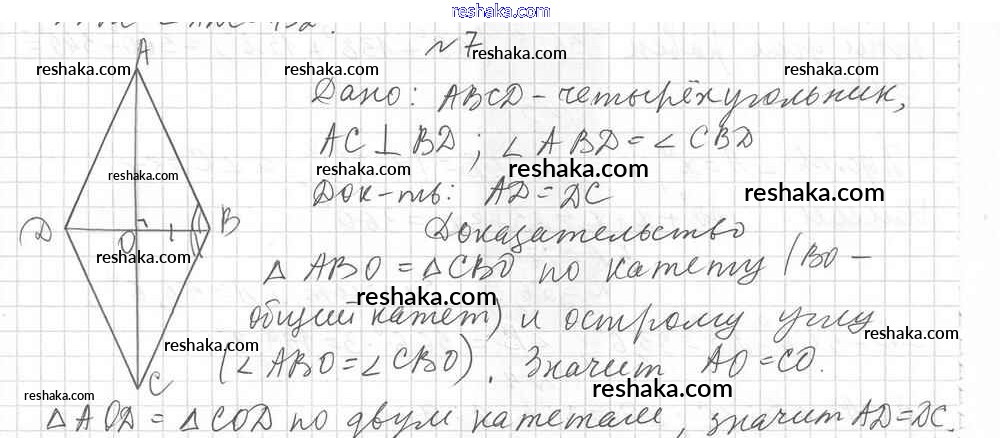 reshaka.com
№7
Дано: ABCD - четырёхугольник,
AC ⊥ BD; ∠ABD = ∠CBD
Док-ть: AD = DC
Доказательство
△ABO = △CBO по катету (BO -
общий катет) и острому углу
(∠ABO = ∠CBO). Значит AO = CO.
△AOD = △COD по двум катетам, значит AD = DC.
A
D
O
B
C
reshaka.com
reshaka.com
reshaka.com
reshaka.com
reshaka.com
reshaka.com
reshaka.com
reshaka.com
reshaka.com
reshaka.com
reshaka.com
reshaka.com
reshaka.com
reshaka.com